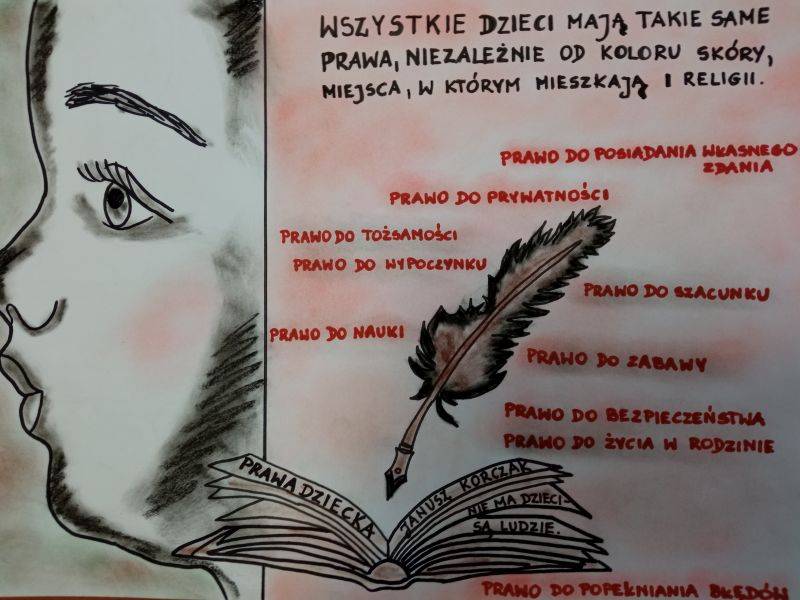 WSZYSTKIE DZIECI MAJĄ TAKIE SAME
PRAWA, NIEZALEŻNIE OD KOLORU SKÓRY,
MIEJSCA, W KTÓRYM MIESZKAJĄ I RELIGII.
PRAWO DO POSIADANIA WŁASNEGO
ZDANIA
PRAWO DO PRYWATNOŚCI
PRAWO DO TOŻSAMOŚCI
PRAWO DO WYPOCZYNKU
PRAWO DO SZACUNKU
PRAWO DO NAUKI
PRAWO DO ZABAWY
PRAWO DO BEZPIECZEŃSTWA
PRAWO DO ŻYCIA W RODZINIE
PRAWA DZIECKA
JANUSZ KORCZAK
NIE MA DZIECI-
SĄ LUDZIE.
PRAWO DO POPEŁNIANIA BŁĘDÓW